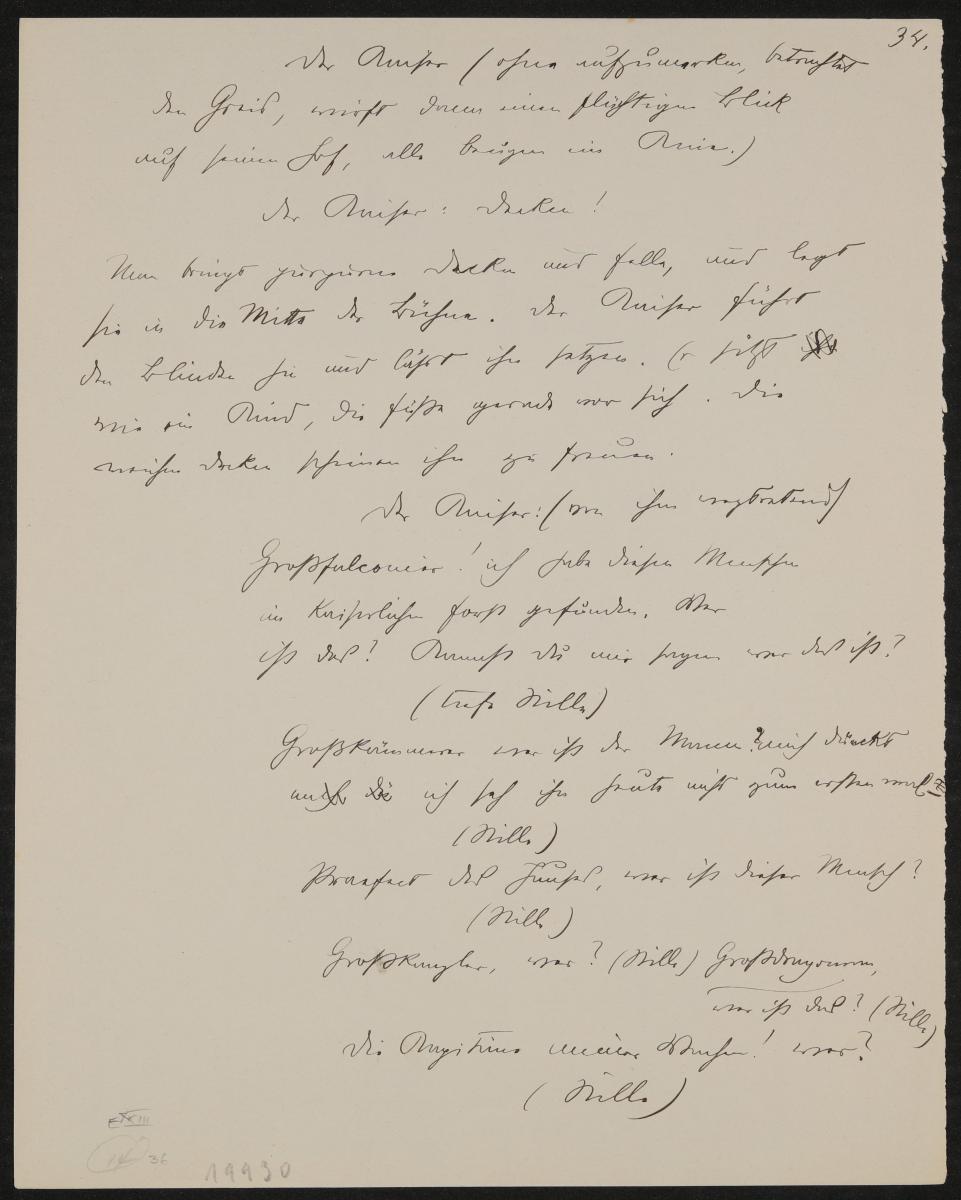 34.
Der Kaiser (ohne aufzumerken, betrachtet
den Greis, wirft dann einen flüchtigen Blick
auf seinen Hof, alle beugen ein Knie.)
Der Kaiser: Decken!
Man bringt purpurne Decken und Felle, und legt
sie in die Mitte der Bühne. Der Kaiser führt
den Blinden hin und läßt ihn setzen. Er sitzt
wie ein Kind, die Füße gerade vor sich. Die
weichen Decken scheinen ihn zu freuen.
Der Kaiser: (von ihm wegtretend)
Großfalconier! ich habe diesen Menschen
im Kaiserlichen Forst gefunden. Wer
ist das? Kannst du mir sagen wer das ist?
(tiefe Stille)
Großkämmerer wer ist der Mann? mich dünckt
ich sah ihn heute nicht zum ersten mal
(Stille)
Praefect des Hauses, wer ist dieser Mensch?
(Stille)
Großkanzler, wer? (Stille) Großdragoman,
wer ist das? (Stille)
Die Kapitäne meiner Wachen! wer?
(Stille)
E IV XIII
14
36
19930